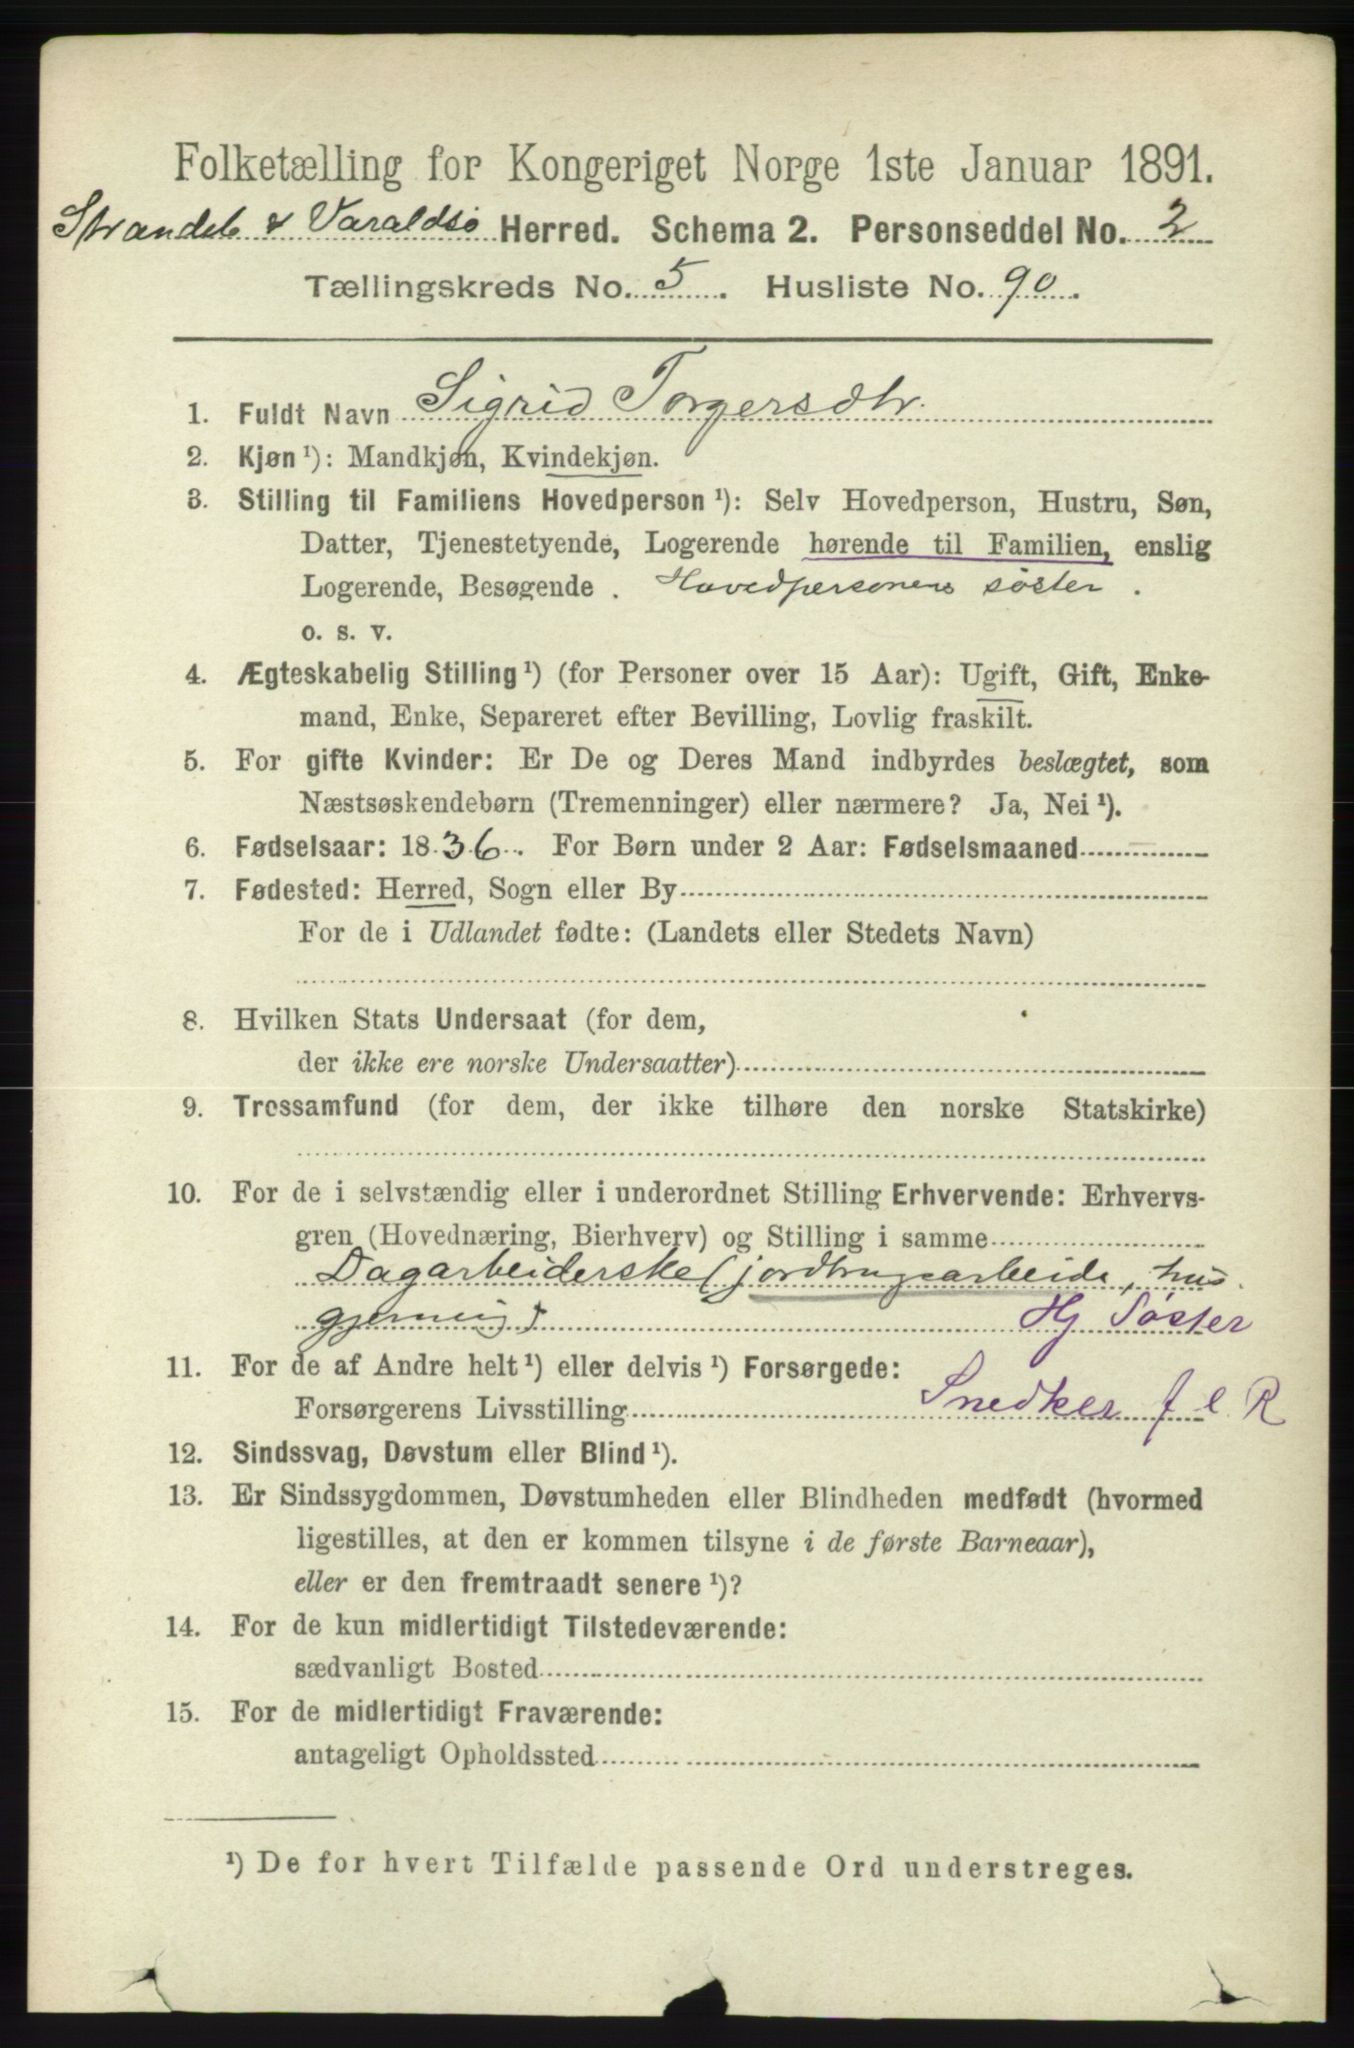 Folketælling for Kongeriget Norge 1ste Januar 1891.
Strandeb & Varaldsø Herred. Schema 2. Personseddel No. 2
Tællingskreds No. 5. Husliste No. 90.
1. Fuldt Navn Sigrid Torgersdtr.
2. Kjøn ¹): Mandkjøn, Kvindekjøn.
3. Stilling til Familiens Hovedperson ¹): Selv Hovedperson, Hustru, Søn,
Datter, Tjenestetyende, Logerende hørende til Familien, enslig
Logerende, Besøgende . Hovedpersonens søster .
o. s. v.
4. Ægteskabelig Stilling ¹) (for Personer over 15 Aar): Ugift, Gift, Enke-
mand, Enke, Separeret efter Bevilling, Lovlig fraskilt.
5. For gifte Kvinder: Er De og Deres Mand indbyrdes beslægtet, som
Næstsøskendebørn (Tremenninger) eller nærmere? Ja, Nei ¹).
6. Fødselsaar: 1836. For Børn under 2 Aar: Fødselsmaaned
7. Fødested: Herred, Sogn eller By
For de i Udlandet fødte: (Landets eller Stedets Navn)
8. Hvilken Stats Undersaat (for dem,
der ikke ere norske Undersaatter)
9. Trossamfund (for dem, der ikke tilhøre den norske Statskirke)
10. For de i selvstændig eller i underordnet Stilling Erhvervende: Erhvervs-
gren (Hovednæring, Bierhverv) og Stilling i samme
Dagarbeiderske (jordbrugsarbeide, hus
gjerning)
Hj Søster
11. For de af Andre helt ¹) eller delvis ¹) Forsørgede:
Forsørgerens Livsstilling Snedker f e R
12. Sindssvag, Døvstum eller Blind ¹).
13. Er Sindssygdommen, Døvstumheden eller Blindheden medfødt (hvormed
ligestilles, at den er kommen tilsyne i de første Barneaar),
eller er den fremtraadt senere ¹)?
14. For de kun midlertidigt Tilstedeværende:
sædvanligt Bosted
15. For de midlertidigt Fraværende:
antageligt Opholdssted
¹) De for hvert Tilfælde passende Ord understreges.